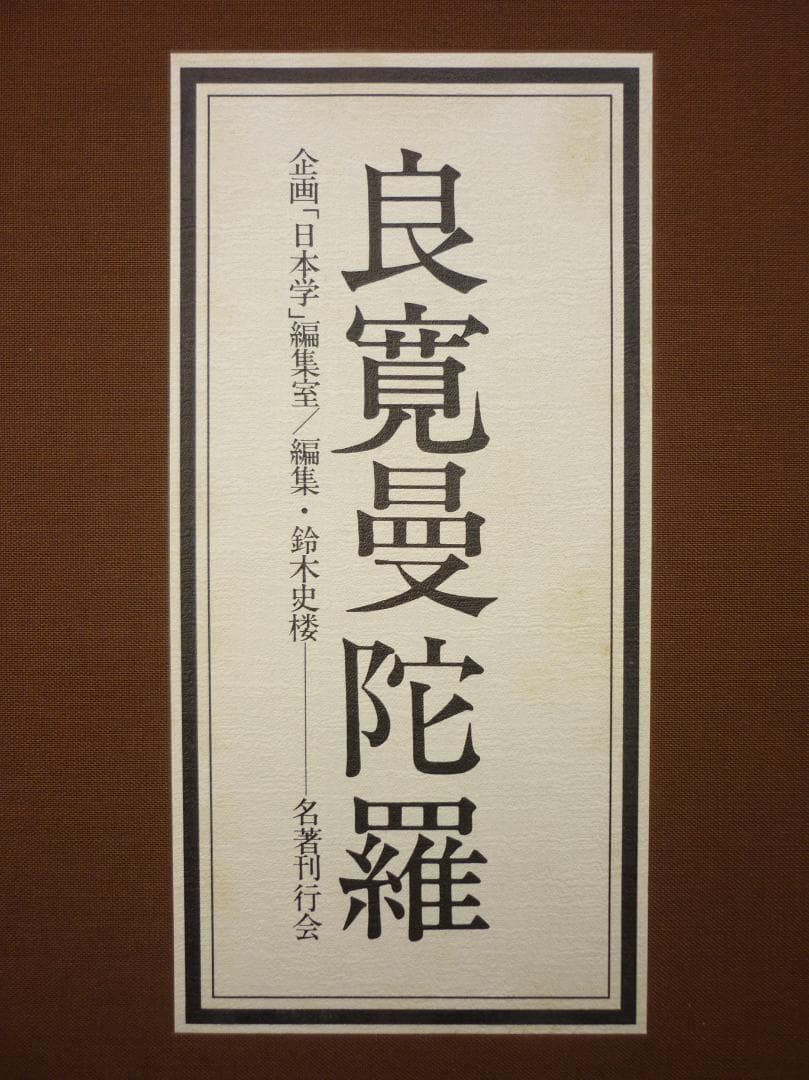 良寛曼陀羅
企画「日本学」編集室／編集・鈴木史楼――名著刊行会